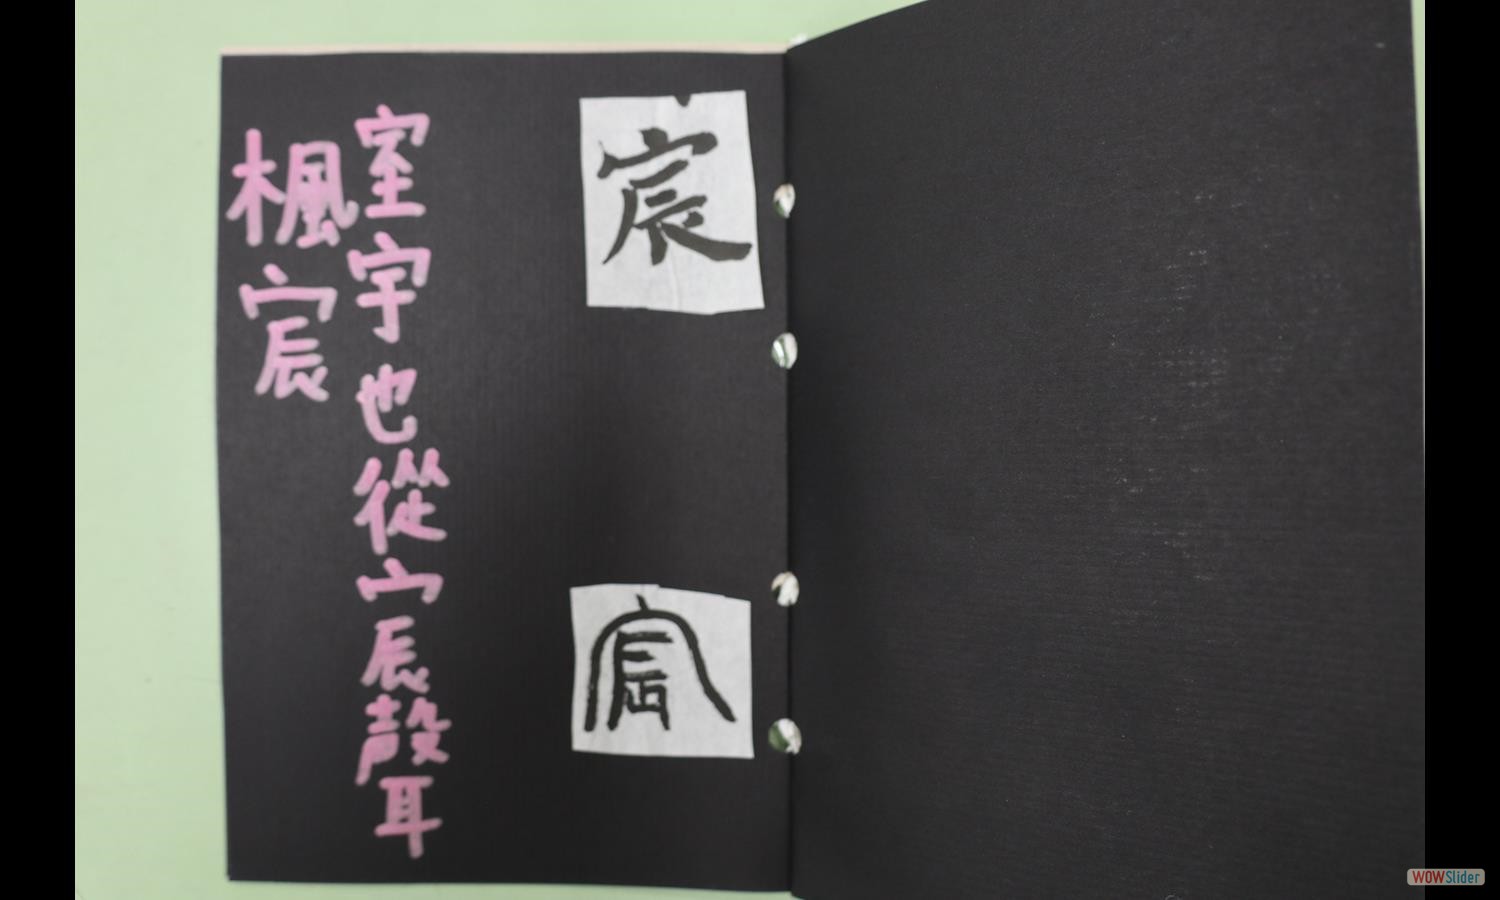 宸
宸
室宇也從宀辰聲
楓宸
WOWSlider